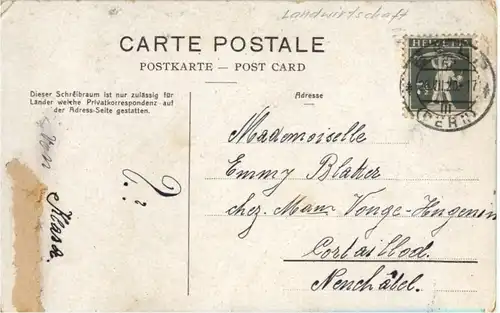 Landwirtschaft
CARTE POSTALE
POSTKARTE – POST CARD
Dieser Schreibraum ist nur zulässig für
Länder welche Privatkorrespondenz auf
der Adress-Seite gestatten.
Adresse
HELVETIA
Klara
?!
Mademoiselle
Emmy Blaker
chez. Mam Vouge-Hugenin
Cortaillod.
Neuchâtel.